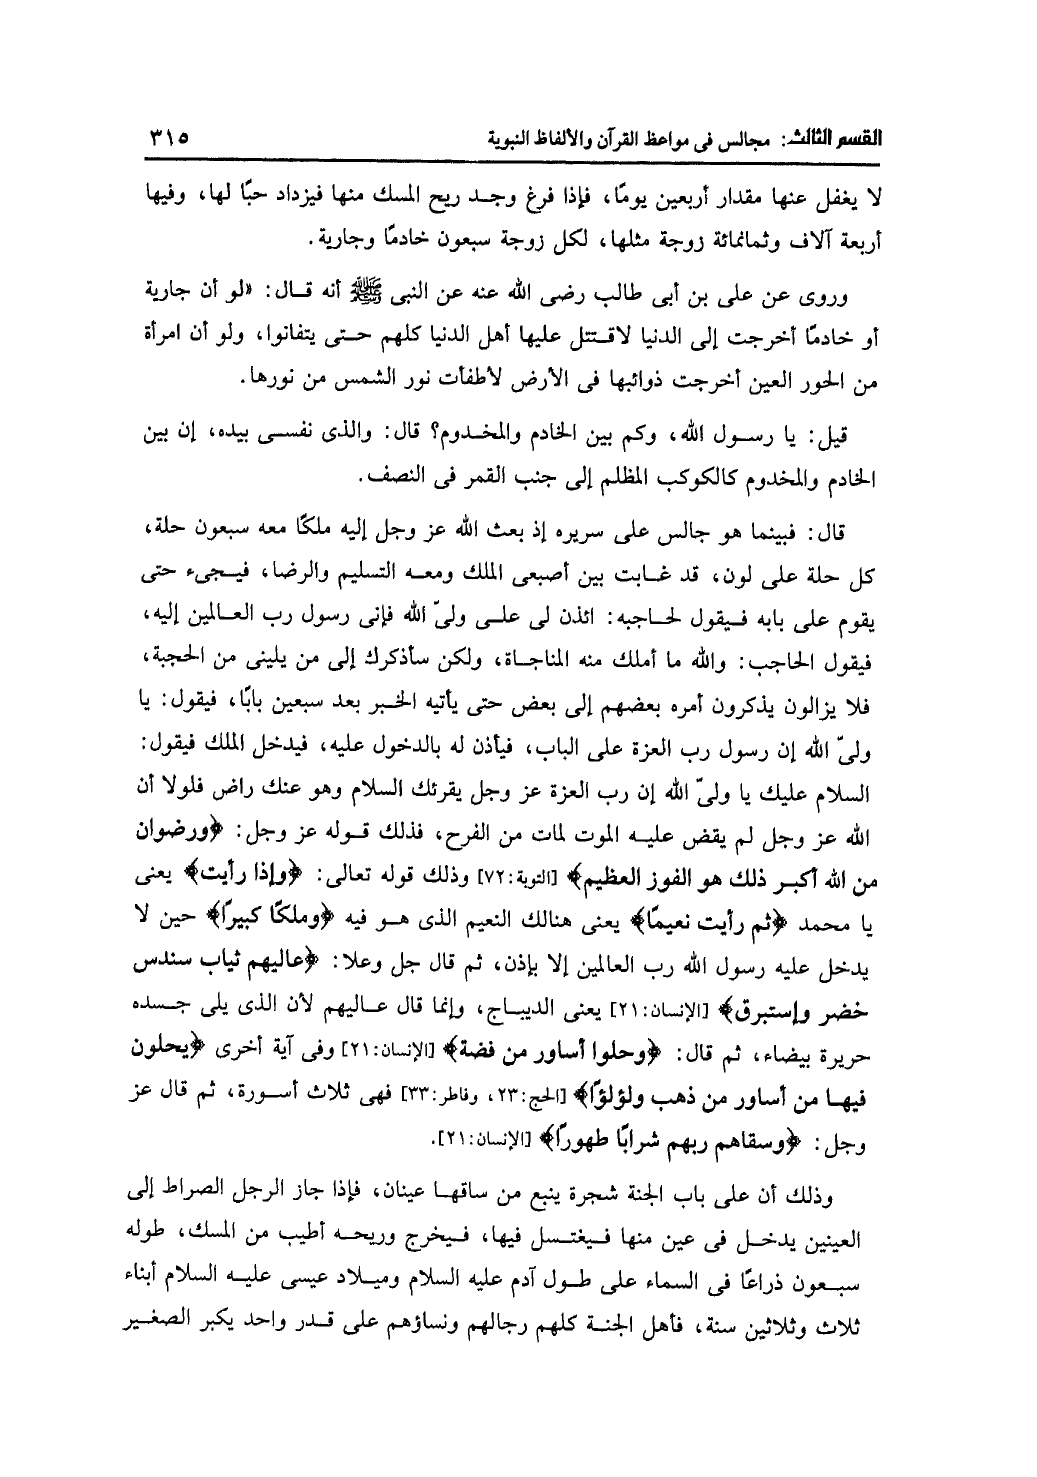 القسم الثالث: مجالس فى مواعظ القرآن والألفاظ النبوية ٣١٥
لا يغفل عنها مقدار أربعين يومًا، فإذا فرغ وجد ريح المسك منها فيزداد حبًا لها، وفيها
أربعة آلاف وثمانمائة زوجة مثلها، لكل زوجة سبعون خادمًا وجارية.
وروى عن على بن أبى طالب رضى الله عنه عن النبى ﷺ أنه قال: «لو أن جارية
أو خادمًا أخرجت إلى الدنيا لاقتتل عليها أهل الدنيا كلهم حتى يتفانوا، ولو أن امرأة
من الحور العين أخرجت ذوائبها فى الأرض لأطفأت نور الشمس من نورها.
قيل: يا رسول الله، وكم بين الخادم والمخدوم؟ قال: والذى نفسى بيده، إن بين
الخادم والمخدوم كالكوكب المظلم إلى جنب القمر فى النصف.
قال: فبينما هو جالس على سريره إذ بعث الله عز وجل إليه ملكًا معه سبعون حلة،
كل حلة على لون، قد غابت بين أصبعى الملك ومعه التسليم والرضا، فيجىء حتى
يقوم على بابه فيقول لحاجبه: ائذن لى على ولىّ الله فإنى رسول رب العالمين إليه،
فيقول الحاجب: والله ما أملك منه المناجاة، ولكن سأذكرك إلى من يلينى من الحجبة،
فلا يزالون يذكرون أمره بعضهم إلى بعض حتى يأتيه الخبر بعد سبعين بابًا، فيقول: يا
ولىّ الله إن رسول رب العزة على الباب، فيأذن له بالدخول عليه، فيدخل الملك فيقول:
السلام عليك يا ولىّ الله إن رب العزة عز وجل يقرئك السلام وهو عنك راض فلولا أن
الله عز وجل لم يقض عليه الموت لمات من الفرح، فذلك قوله عز وجل: ﴿ورضوان
من الله أكبر ذلك هو الفوز العظيم﴾ [التوبة:٧٢] وذلك قوله تعالى: ﴿وإذا رأيت﴾ يعنى
يا محمد ﴿ثم رأيت نعيمًا﴾ يعنى هنالك النعيم الذى هو فيه ﴿وملكًا كبيرًا﴾ حين لا
يدخل عليه رسول الله رب العالمين إلا بإذن، ثم قال جل وعلا: ﴿عاليهم ثياب سندس
خضر وإستبرق﴾ [الإنسان:٢١] يعنى الديباج، وإنما قال عاليهم لأن الذى يلى جسده
حريرة بيضاء، ثم قال: ﴿وحلوا أساور من فضة﴾ [الإنسان:٢١] وفى آية أخرى ﴿يحلون
فيها من أساور من ذهب ولؤلؤًا﴾ [الحج:٢٣، وفاطر:٣٣] فهى ثلاث أسورة، ثم قال عز
وجل: ﴿وسقاهم ربهم شرابًا طهورًا﴾ [الإنسان:٢١].
وذلك أن على باب الجنة شجرة ينبع من ساقها عينان، فإذا جاز الرجل الصراط إلى
العينين يدخل فى عين منها فيغتسل فيها، فيخرج وريحه أطيب من المسك، طوله
سبعون ذراعًا فى السماء على طول آدم عليه السلام وميلاد عيسى عليه السلام أبناء
ثلاث وثلاثين سنة، فأهل الجنة كلهم رجالهم ونساؤهم على قدر واحد يكبر الصغير